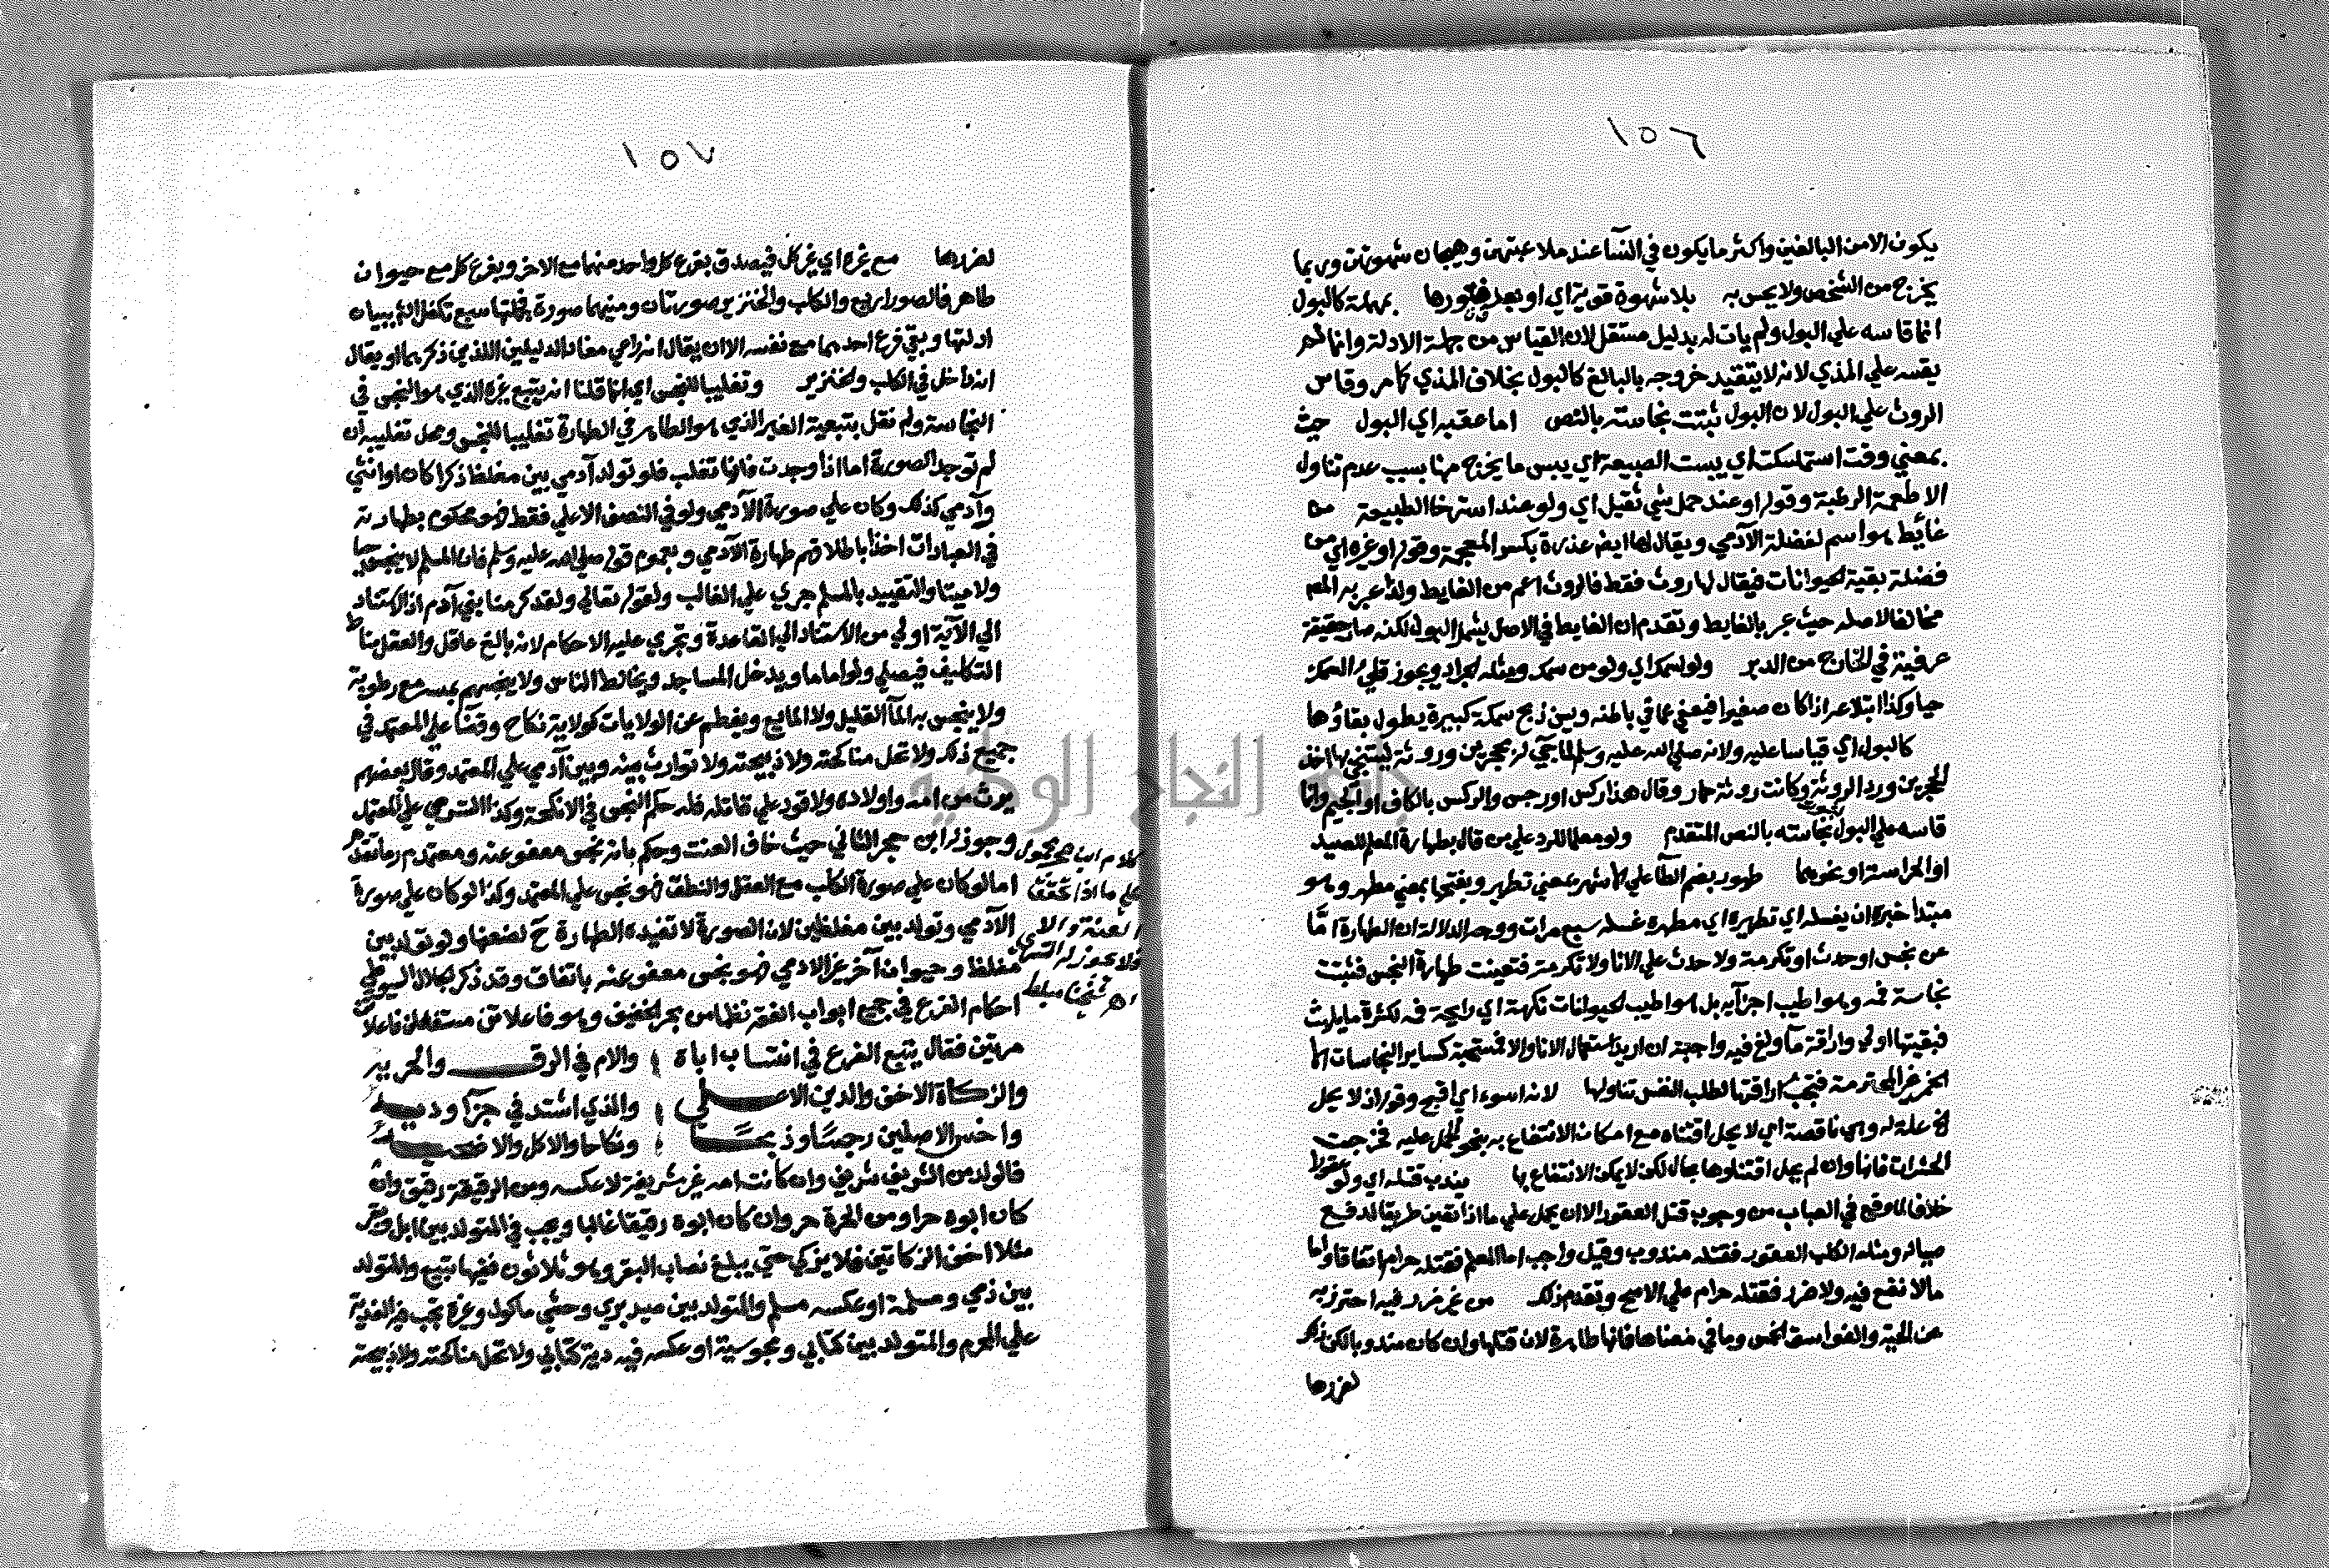 ١٥٦
يكون الا من البالغين واكثر ما يكون في النسآ عند ملاعبتهن وهيجان شهوتهن وربما
يخرج من الشخص ولا يحس به بلا شهوة قوية اي او بعد فتورها بمهملة كالبول
انما قاسه علي البول ولم يات له بدليل مستقل لان القياس من جملة الادلة وانما لم
يقسه علي المذي لانه لا يتقيد خروجه بالبالغ كالبول بخلاف المذي كما مر وقاس
الروث علي البول لان البول ثبتت نجاسته بالنص اما عقبه اي البول حيث
بمعني وقت استمسكت اي يبست الطبيعة اي يبس ما يخرج منها بسبب عدم تناول
الاطعمة الرطبة وقوله او عند حمل شي ثقيل اي ولو عند استرخا الطبيعة من
غائط هو اسم لفضلة الآدمي ويقال لها ايضا عذرة بكسر المعجمة وقوله او غيره اي من
فضلة بقية الحيوانات فيقال لها روث فقط فالروث اعم من الغايط ولذا عبر به المص
مخالفا لاصله حيث عبر بالغايط وتقدم ان الغايط في الاصل يشمل البول لكنه صار حقيقة
عرفية في الخارج من الدبر ولو لسمك اي ولو من سمك ومثله الجراد ويجوز قلي السمك
حيا وكذا ابتلاعه اذا كان صغيرا فيعفي عما في باطنه ويسن ذبح سمكة كبيرة يطول بقاؤها
كالبول اي قياسا عليه ولانه صلي الله عليه وسلم لما جئ له بحجرين وروثة ليستنجي بها اخذ
الحجرين ورد الروثة وكانت روثة حمار وقال هذا ركس او رجس والركس بالكاف او الجيم وانما
قاسه علي البول نجاسته بالنص المتقدم ولو معلما للرد علي من قال بطهارة المعلم للصيد
او الحراسة او نحوهما طهور بضم الطآ علي الاشهر بمعني تطهير وبفتحها بمعني مطهر وهو
مبتدا خبره ان يغسله اي تطهيره اي مطهره غسله سبع مرات ووجه الدلالة ان الطهارة اما
عن نجس او حدث او تكرمة ولا حدث علي الانا ولا تكرمة فتعينت طهارة النجس فثبتت
نجاسة فمه وهو اطيب اجزآيه بل هو اطيب الحيوانات نكهة اي رايحة فم لكثرة ما يلهث
فبقيتها اولي واراقة مآ ولغ فيه واجبة ان اريد استعمال الانا والا فمستحبة كساير النجاسات الا
الخمر غير المحترمة فتجب اراقتها لطلب النفس تناولها لانه اسوء اي اقبح وقوله اذ لا يحل
الخ علة له وهي ناقصة اي لا يحل اقتناه مع امكان الانتفاع به بنحو الحمل عليه فخرجت
الحشرات فانها وان لم يحل اقتناوها بحال لكن لا يمكن الانتفاع بها يندب قتله اي ولو عقورا
خلافا لما وقع في العباب من وجوب قتل العقور الا ان يحمل علي ما اذا تعين طريقا لدفع
صياله ومثله الكلب العقور فقتله مندوب وقيل واجب اما المعلم فقتله حرام اتفاقا واما
مالا نفع فيه ولا ضرر فقتله حرام علي الاصح وتقدم ذلك من غير ضرر فيه احترز به
عن الحية والفواسق الخمس وما في معناها فانها طاهرة لان قتلها وان كان مندوبا لكن ذلك
لضررها
١٥٧
لضررها مع غيره اي غير كل فيصدق بفرع كل واحد منهما مع الاخر وبفرع كل مع حيوان
طاهر فالصور اربع والكلب والخنزير صورتان ومنيهما صورة فجملتها سبع تكفل الشيبان
ادلتها وبقي فرع احدهما مع نفسه الا ان يقال انه راعي مفاد الدليلين اللذين ذكرهما او يقال
انه داخل في الكلب والخنزير وتغليبا للنجس اي انما قلنا انه يتبع غيره الذي هو النجس في
النجاسة ولم نقل بتبعية الغير الذي هو الطاهر في الطهارة تغليبا للنجس ومحل تغليبه ان
لم توجد الصورة اما اذا وجدت فانها تغلب فلو تولد آدمي بين مغلظ ذكرا كان او انثي
وآدمي كذلك وكان علي صورة الآدمي ولو في النصف الاعلي فقط فهو محكوم بطهارته
في العبادات اخذا باطلاقهم طهارة الآدمي وبعموم قوله صلي الله عليه وسلم فان المسلم لا ينجس حيا
ولا ميتا والتقييد بالمسلم جري علي الغالب ولقوله تعالي ولقد كرمنا بني آدم اذ الاستناد
الي الآية اولي من الاستناد الي القاعدة وتجري عليه الاحكام لانه بالغ عاقل والعقل مناط
التكليف فيصلي ولو اماما ويدخل المساجد ويخالط الناس ولا ينجسهم بمسه مع رطوبة
ولا ينجس به المآ القليل ولا المايع ويفطم عن الولايات كولاية نكاح وقضآ علي المعتمد في
جميع ذلك ولا تحل مناكحته ولا ذبيحته ولا توارث بينه وبين آدمي علي المعتمد وقال بعضهم
يرث من امه واولاده ولا قود علي قاتله فله حكم النجس في الانكحة وكذا التسري علي المعتمد
وجوز له ابن حجر الثاني حيث خاف العنت وحكم بانه نجس معفو عنه ومعتمد م ر ما تقدم
اما لو كان علي صورة الكلب مع العقل والنطق فهو نجس علي المعتمد وكذا لو كان علي صورة
الآدمي وتولد بين مغلظين لان الصورة لا تفيده الطهارة ح لضعفها ولو تولد بين
مغلظ وحيوان آخر غير الادمي فهو نجس معفو عنه باتفاق وقد ذكر الجلال السيوطي
احكام الفرع في جميع ابواب الفقه نظما من بحر الخفيف وهو فاعلاتن مستفعلن فاعلاتن
مرتين فقال يتبع الفرع في انتساب اباه ؛ والام في الرق والحريه
والزكاة الاخف والدين الاعلي ؛ والذي اشتد في جزآ وديه
واخس الاصلين رجسا وذبحا ؛ ونكاحا والاكل والاضحيه
فالولد من الشريف شريف وان كانت امه غير شريفة لا عكسه ومن الرقيقة رقيق وان
كان ابوه حرا ومن الحرة حر وان كان ابوه رقيقا غالبا ويجب في المتولد بين ابل وبقر
مثلا اخف الزكاتين فلا يزكي حتي يبلغ نصاب البقر وهو ثلاثون ففيها تبيع والمتولد
بين ذمي ومسلمة او عكسه مسلم والمتولد بين صيد بري وحشي ماكول وغيره تجب فيه الفدية
علي المحرم والمتولد بين كتابي ومجوسية او عكسه فيه دية كتابي ولا تحل مناكحته ولا ذبيحته
كلام ابن حجر محمول
علي ما اذا تحقق
العنت والا
فلا يجوز له التسري
اهـ شيخنا
جامعة النجاح الوطنية